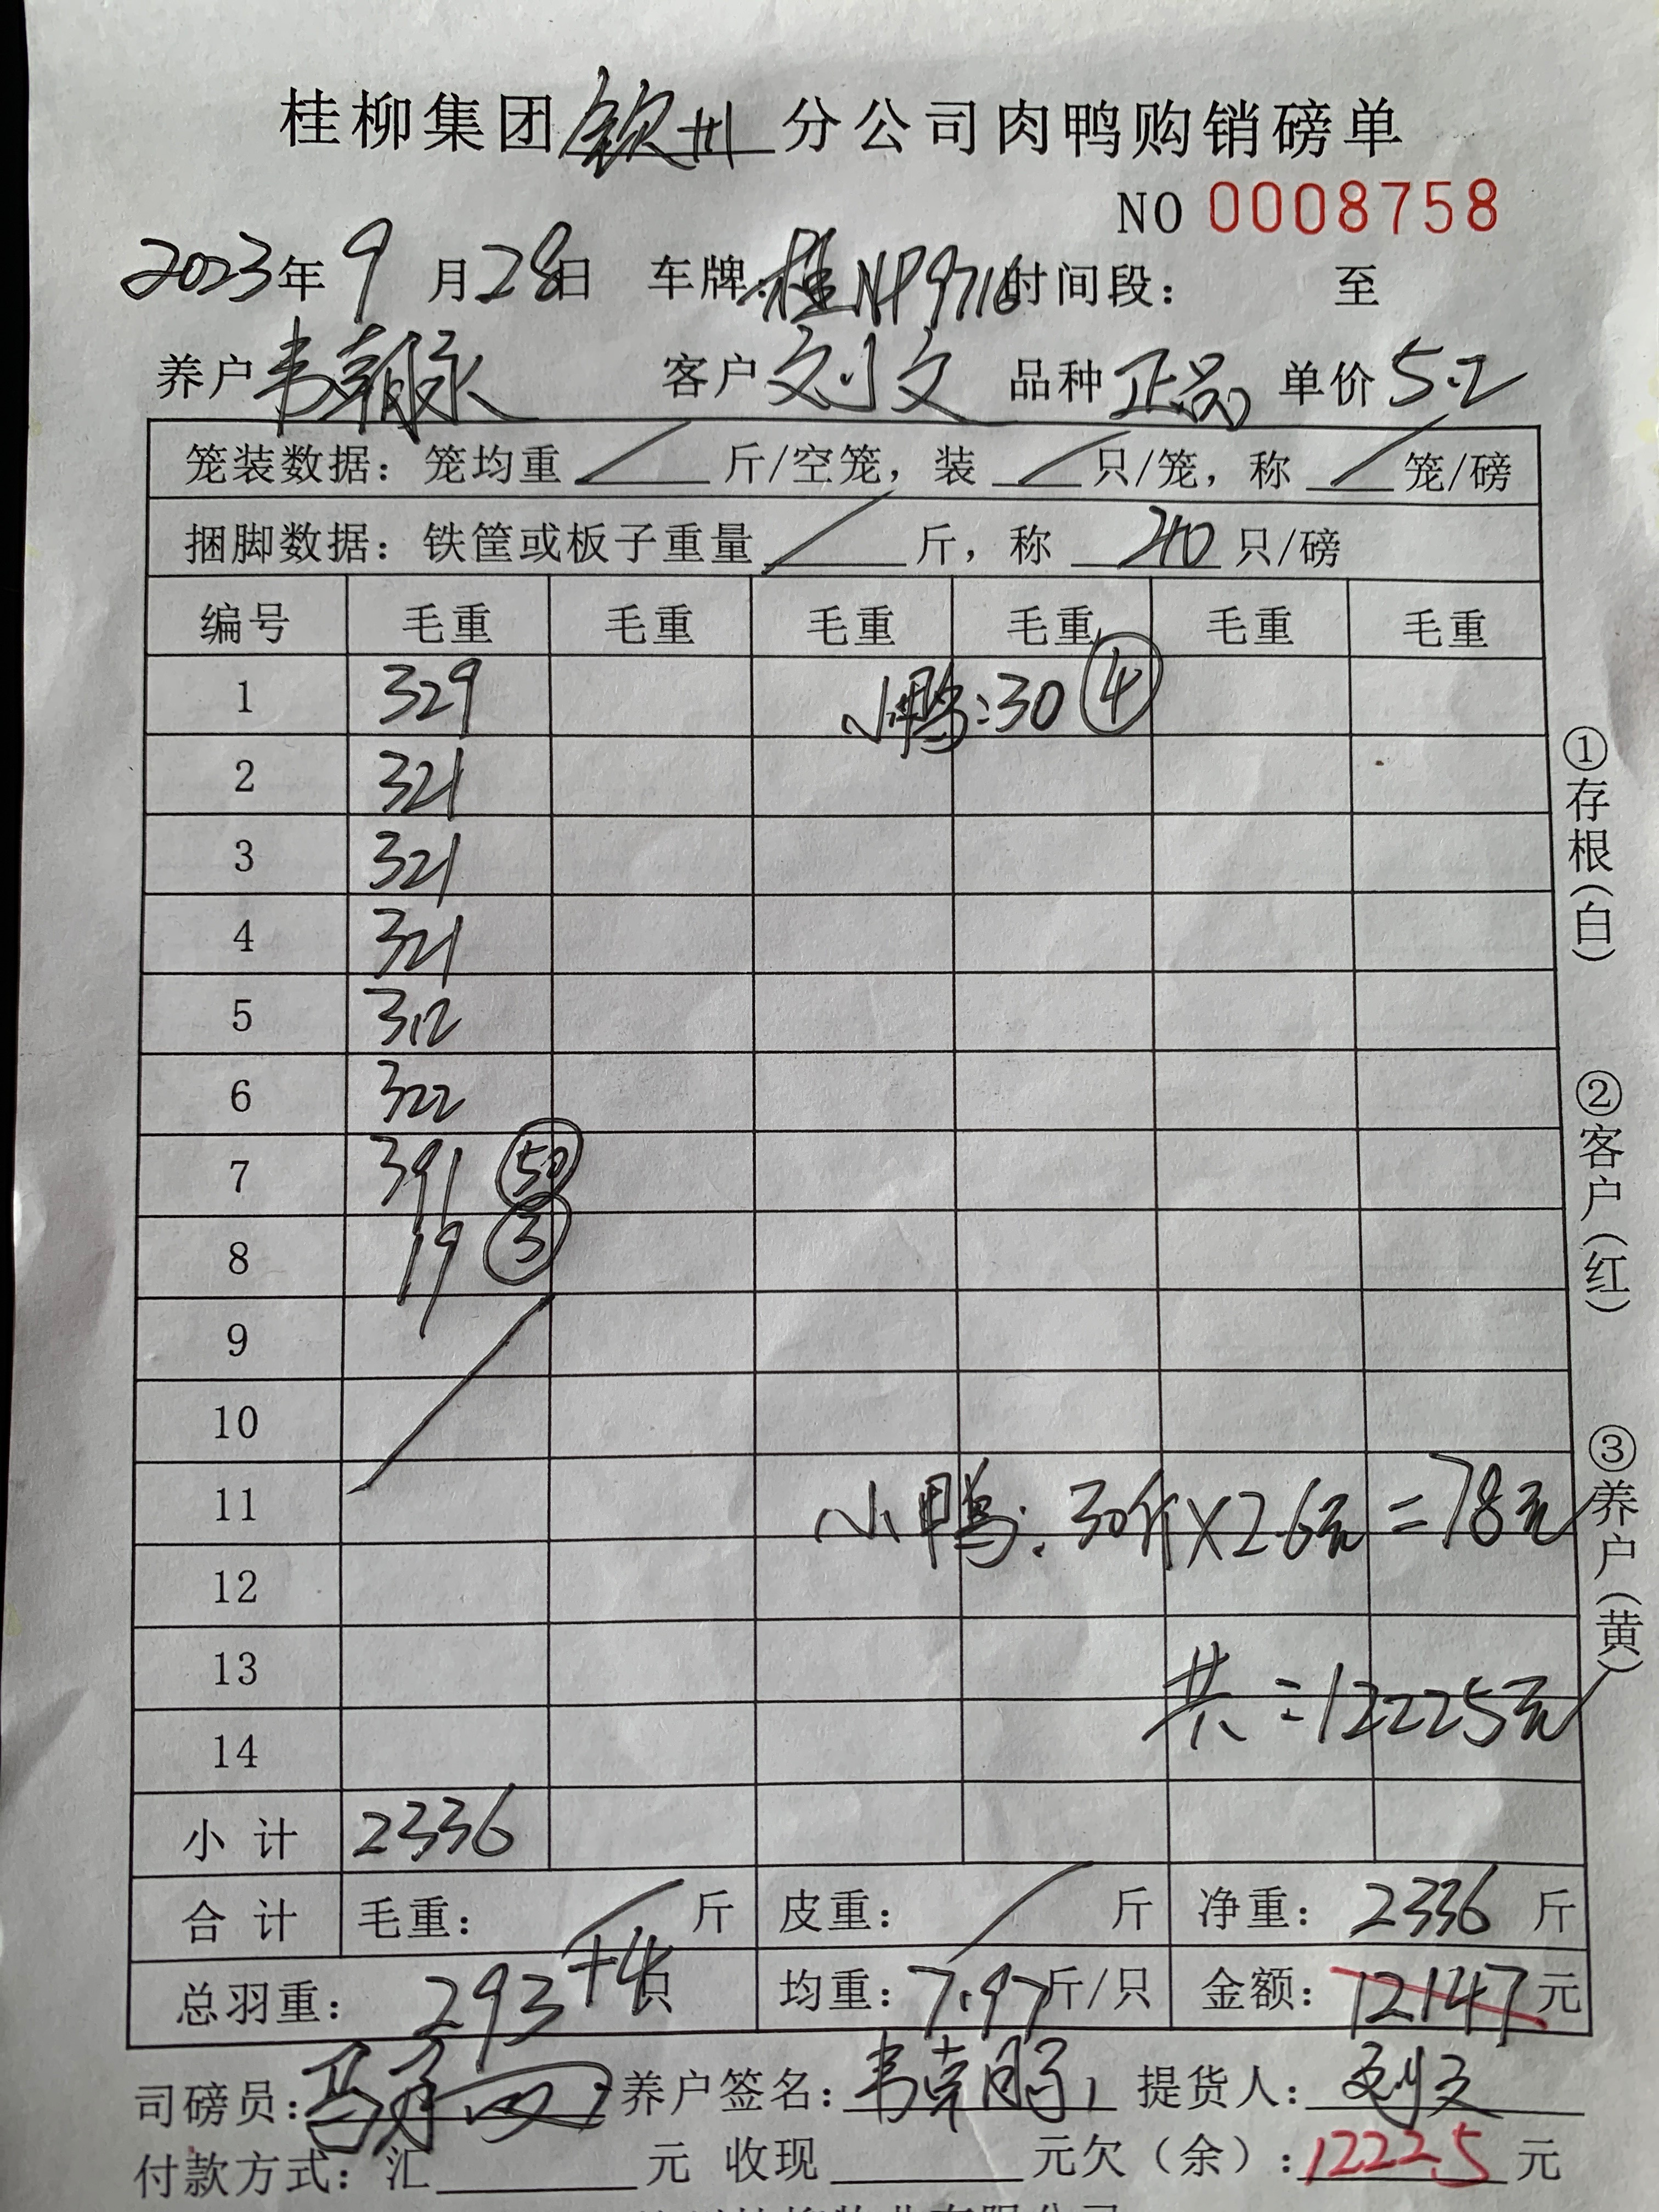 桂柳集团钦州分公司肉鸭购销磅单
NO 0008758
2023年9月28日 车牌:桂NP9716 时间段: 至
养户 韦朝永 客户 刘文 品种 正品 单价 5.2
笼装数据: 笼均重 / 斤/空笼, 装 / 只/笼, 称 / 笼/磅
捆脚数据: 铁筐或板子重量 / 斤, 称 40 只/磅
编号 毛重 毛重 毛重 毛重 毛重 毛重
1 329 小鸭:30 ④
2 321
3 321
4 321
5 312
6 322
7 391 ㊿
8 19 ③
9
10
11 小鸭:30斤×2.6元=78元
12
13 共=12225元
14
小计 2336
合计 毛重: / 斤 皮重: / 斤 净重: 2336 斤
总羽重: 293+4只 均重: 7.97斤/只 金额: 12147元
司磅员: 养户签名: 韦 提货人: 刘文
付款方式: 汇 元 收现 元欠(余):12225元
①存根(白)
②客户(红)
③养户(黄)